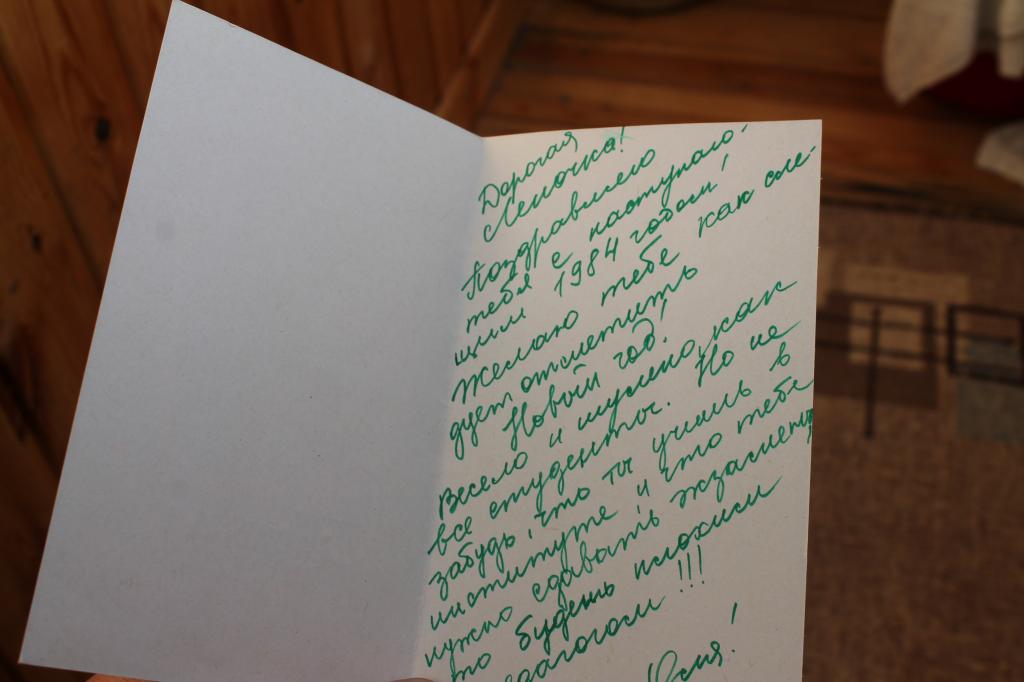 Дорогая
Леночка!
Поздравляю
тебя с наступаю-
щим 1984 годом!
Желаю тебе как сле-
дует отметить
Новый год!
Весело и шумно, как
все студенты. Но не
забудь, что ты учишь в
институте и что тебе
нужно сдавать экзамены,
то будешь плохим